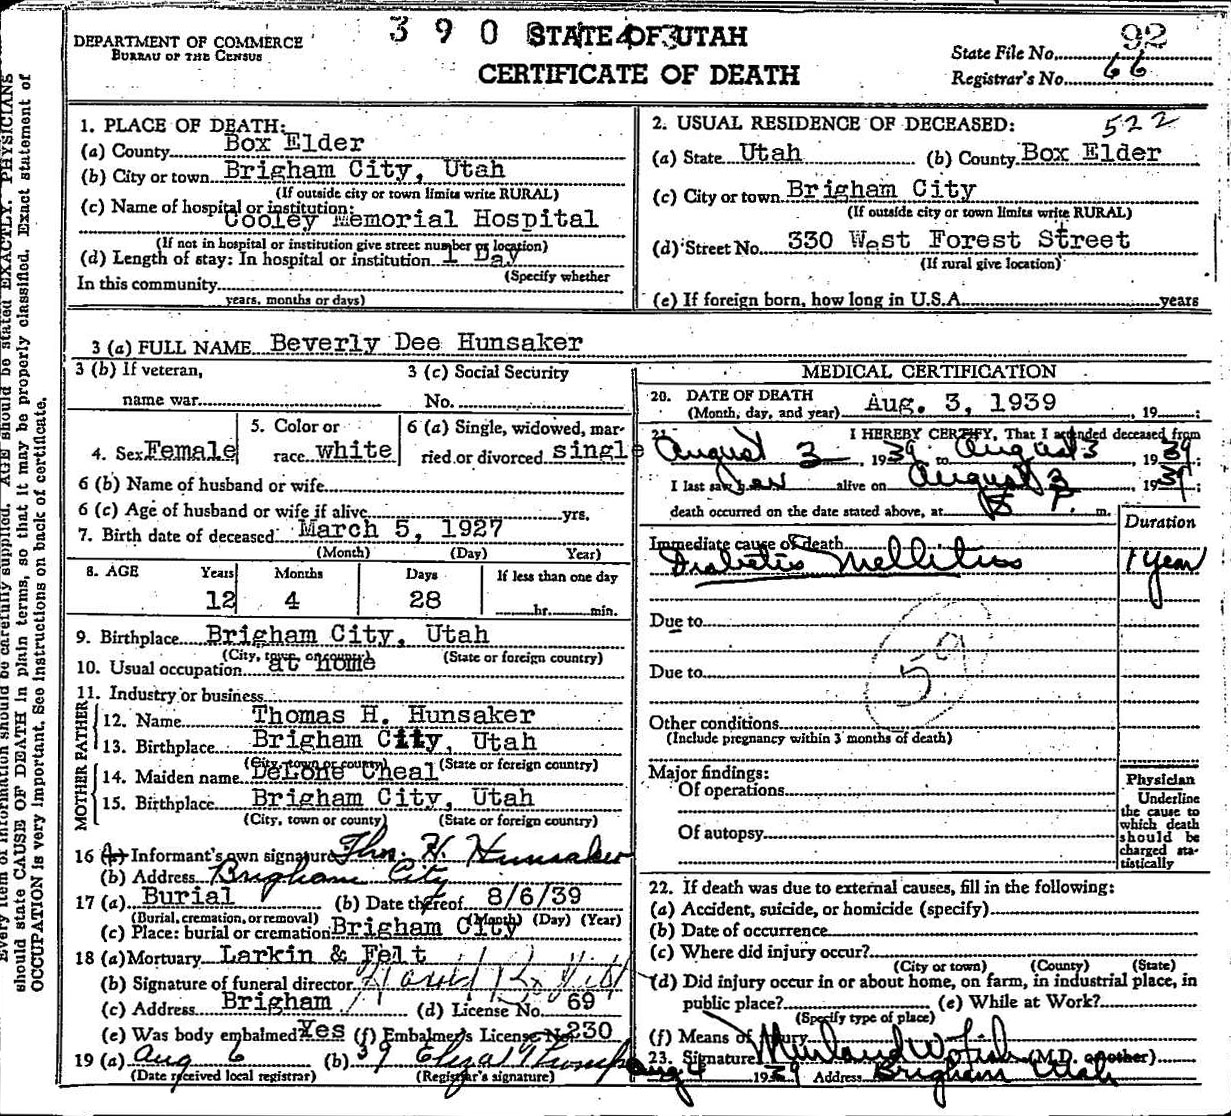 DEPARTMENT OF COMMERCE
BUREAU OF THE CENSUS
3 9 0
STATE OF UTAH
CERTIFICATE OF DEATH
State File No. 92
Registrar's No. 66
1. PLACE OF DEATH:
(a) County Box Elder
(b) City or town Brigham City, Utah
(If outside city or town limits write RURAL)
(c) Name of hospital or institution:
Cooley Memorial Hospital
(If not in hospital or institution give street number or location)
(d) Length of stay: In hospital or institution 1 Day
(Specify whether
In this community
years, months or days)
2. USUAL RESIDENCE OF DECEASED: 522
(a) State Utah (b) County Box Elder
(c) City or town Brigham City
(If outside city or town limits write RURAL)
(d) Street No. 330 West Forest Street
(If rural give location)
(e) If foreign born, how long in U.S.A. years
3 (a) FULL NAME Beverly Dee Hunsaker
3 (b) If veteran,
name war
3 (c) Social Security
No.
4. Sex Female
5. Color or
race white
6 (a) Single, widowed, mar-
ried or divorced single
6 (b) Name of husband or wife
6 (c) Age of husband or wife if alive yrs.
7. Birth date of deceased March 5, 1927
(Month) (Day) Year)
8. AGE Years Months Days If less than one day
12 4 28 hr. min.
9. Birthplace Brigham City, Utah
(City, town, or county) (State or foreign country)
10. Usual occupation at home
11. Industry or business
FATHER
12. Name Thomas H. Hunsaker
13. Birthplace Brigham City, Utah
(City, town or county) (State or foreign country)
MOTHER
14. Maiden name DeLone Cheal
15. Birthplace Brigham City, Utah
(City, town or county) (State or foreign country)
16 (a) Informant's own signature Thos. H. Hunsaker
(b) Address Brigham City
17 (a) Burial (b) Date thereof 8/6/39
(Burial, cremation, or removal) (Month) (Day) (Year)
(c) Place: burial or cremation Brigham City
18 (a) Mortuary Larkin & Felt
(b) Signature of funeral director
(c) Address Brigham (d) License No. 69
(e) Was body embalmed Yes (f) Embalmer's License No. 230
19 (a) Aug 6 (b) 39
(Date received local registrar) (Registrar's signature)
MEDICAL CERTIFICATION
20. DATE OF DEATH
(Month, day, and year) Aug. 3, 1939, 19 ;
21. I HEREBY CERTIFY, That I attended deceased from
August 3, 1939 to August 3 1939;
I last saw her alive on August 3 1939;
death occurred on the date stated above, at 8 P. m.
Duration
Immediate cause of death
Diabetis Mellitus 1 year
Due to
Due to
59
Other conditions
(Include pregnancy within 3 months of death)
Major findings:
Of operations
Of autopsy
Physician
Underline
the cause to
which death
should be
charged sta-
tistically
22. If death was due to external causes, fill in the following:
(a) Accident, suicide, or homicide (specify)
(b) Date of occurrence
(c) Where did injury occur?
(City or town) (County) (State)
(d) Did injury occur in or about home, on farm, in industrial place, in
public place? (e) While at Work?
(Specify type of place)
(f) Means of injury
23. Signature (M.D. or other)
Aug 4 1939 Address Brigham Utah
should state CAUSE OF DEATH in plain terms, so that it may be properly classified. Exact statement of
OCCUPATION is very important. See instructions on back of certificate.
Every item of information should be carefully supplied. AGE should be stated EXACTLY. PHYSICIANS